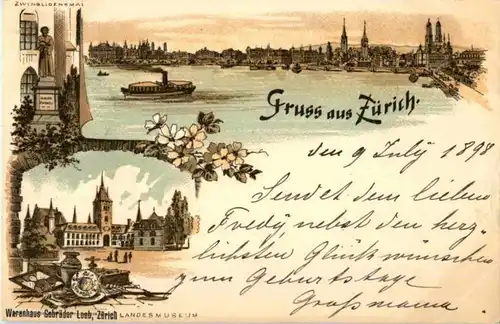 ZWINGLIDENKMAL
Gruss aus Zürich.
den 9 July 1898
Sendet dem lieben
Fredy, nebst den herz=
lichsten Glückwünschen
zum Geburtstage
Großmama
Warenhaus Gebrüder Loeb, Zürich
LANDESMUSEUM